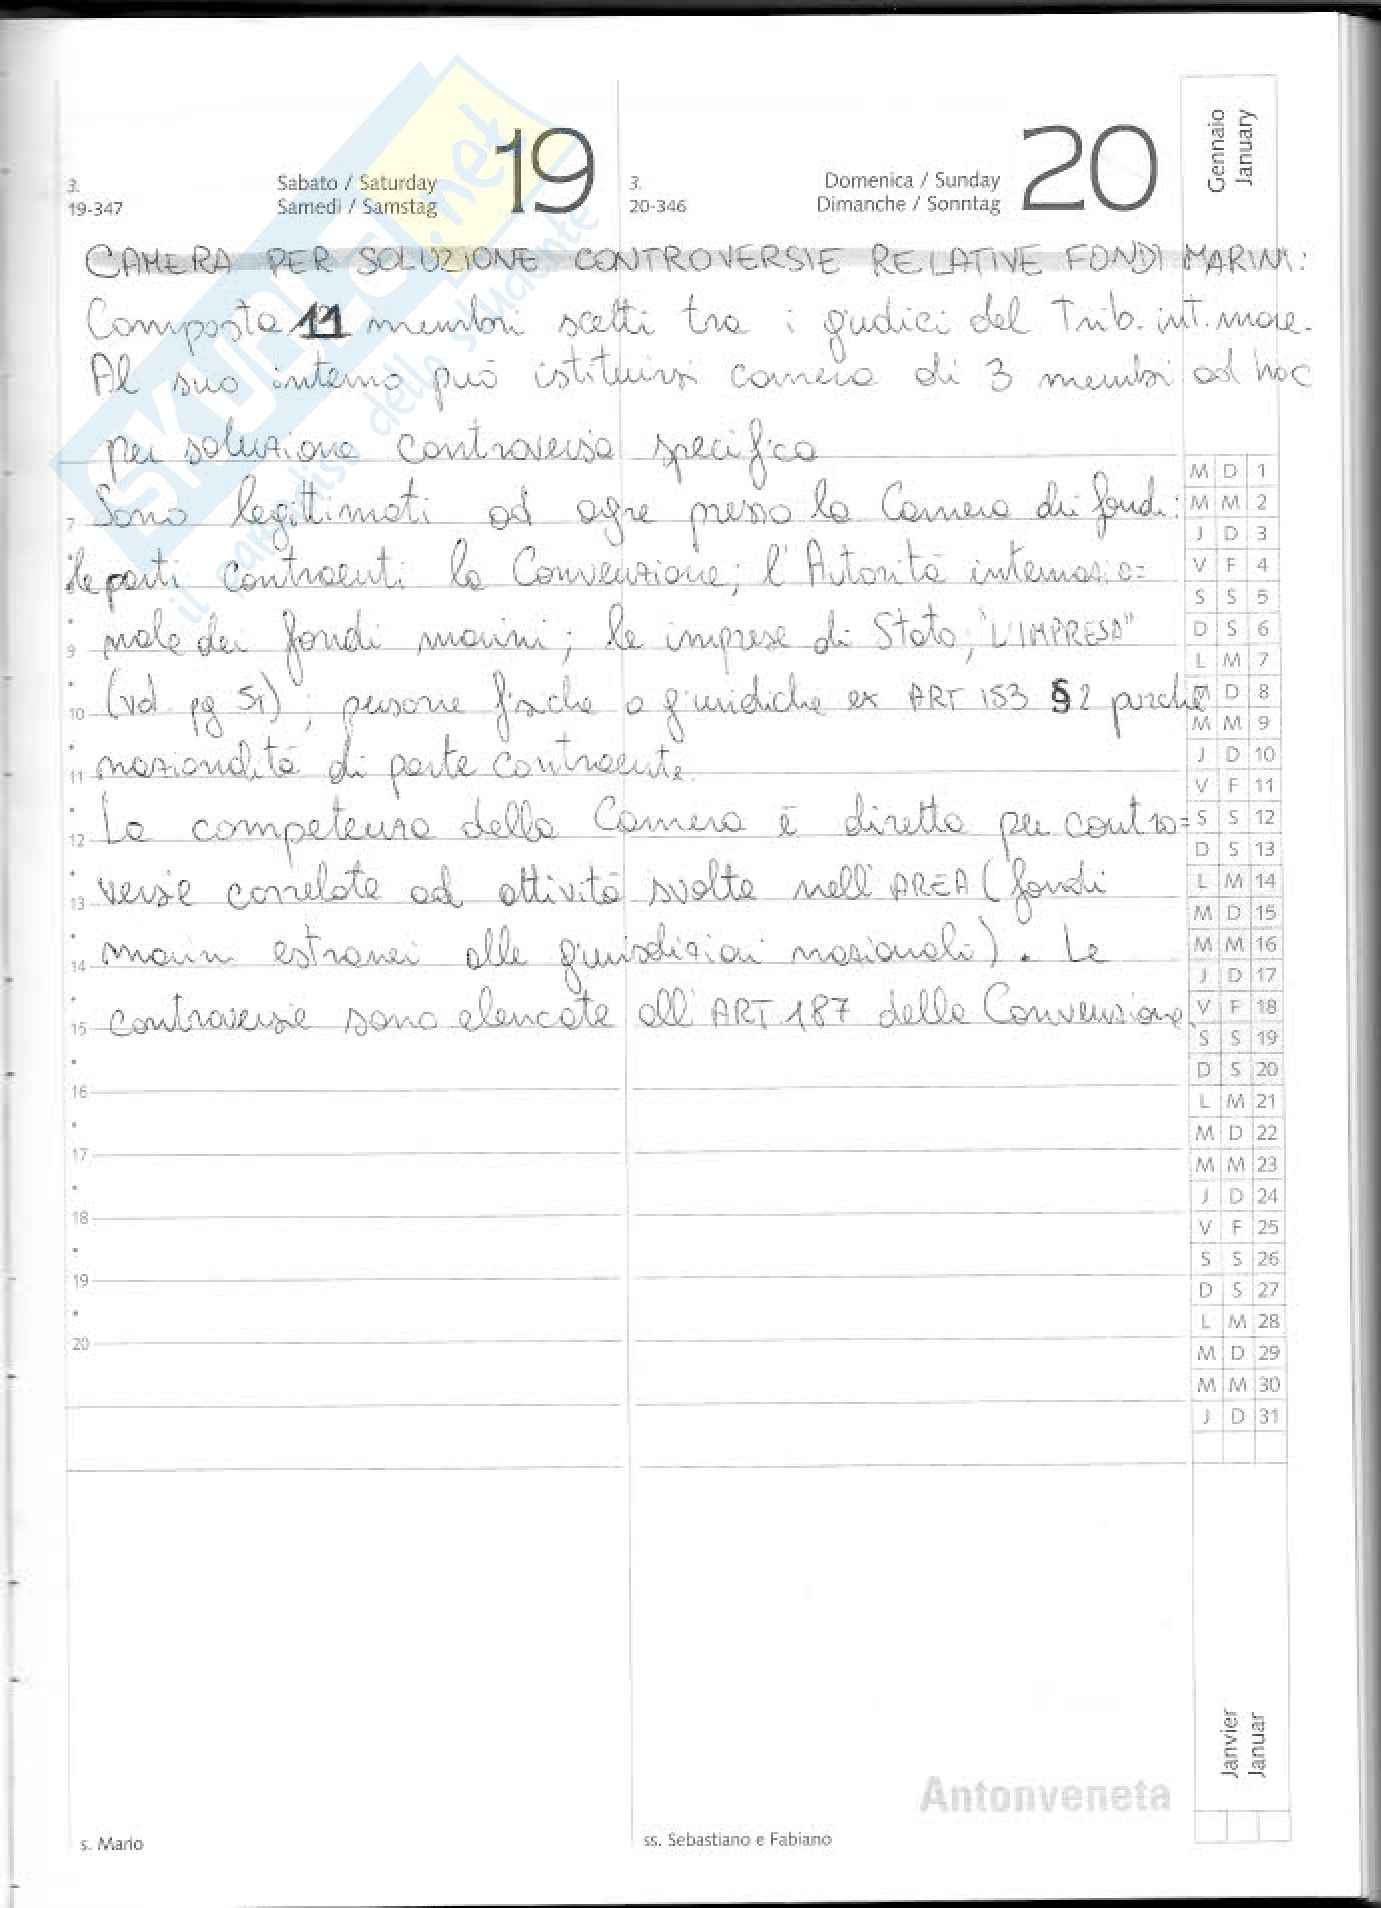 Gennaio
January
3.
19-347
Sabato / Saturday
Samedi / Samstag
19
3.
20-346
Domenica / Sunday
Dimanche / Sonntag
20
SKUOLA.net
il paradiso dello studente
CAMERA PER SOLUZIONE CONTROVERSIE RELATIVE FONDI MARINI:
Composta 11 membri scelti tra i giudici del Trib. int. mare.
Al suo interno può istituirsi camera di 3 membri ad hoc
per soluzione controversia specifica
7 Sono legittimati ad agire presso la Camera dei fondi:
le parti contraenti la Convenzione; l'Autorità internazio=
9 nale dei fondi marini; le imprese di Stato; "L'IMPRESA"
10 (vd. pg 51); persone fisiche o giuridiche ex ART 153 § 2 purché
11 nazionalità di parte contraente.
12 La competenza della Camera è diretta per contro=
13 versie correlate ad attività svolte nell'AREA (fondi
14 marini estranei alle giurisdizioni nazionali). Le
15 controversie sono elencate all'ART. 187 della Convenzione.
16
17
18
19
20
M D 1
M M 2
J D 3
V F 4
S S 5
D S 6
L M 7
M D 8
M M 9
J D 10
V F 11
S S 12
D S 13
L M 14
M D 15
M M 16
J D 17
V F 18
S S 19
D S 20
L M 21
M D 22
M M 23
J D 24
V F 25
S S 26
D S 27
L M 28
M D 29
M M 30
J D 31
Janvier
Januar
Antonveneta
s. Mario
ss. Sebastiano e Fabiano